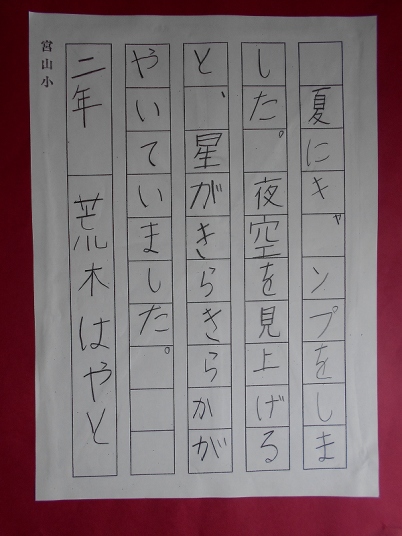 夏にキャンプをしま
した。夜空を見上げる
と、星がきらきらかが
やいていました。
二年　荒木はやと
宮山小